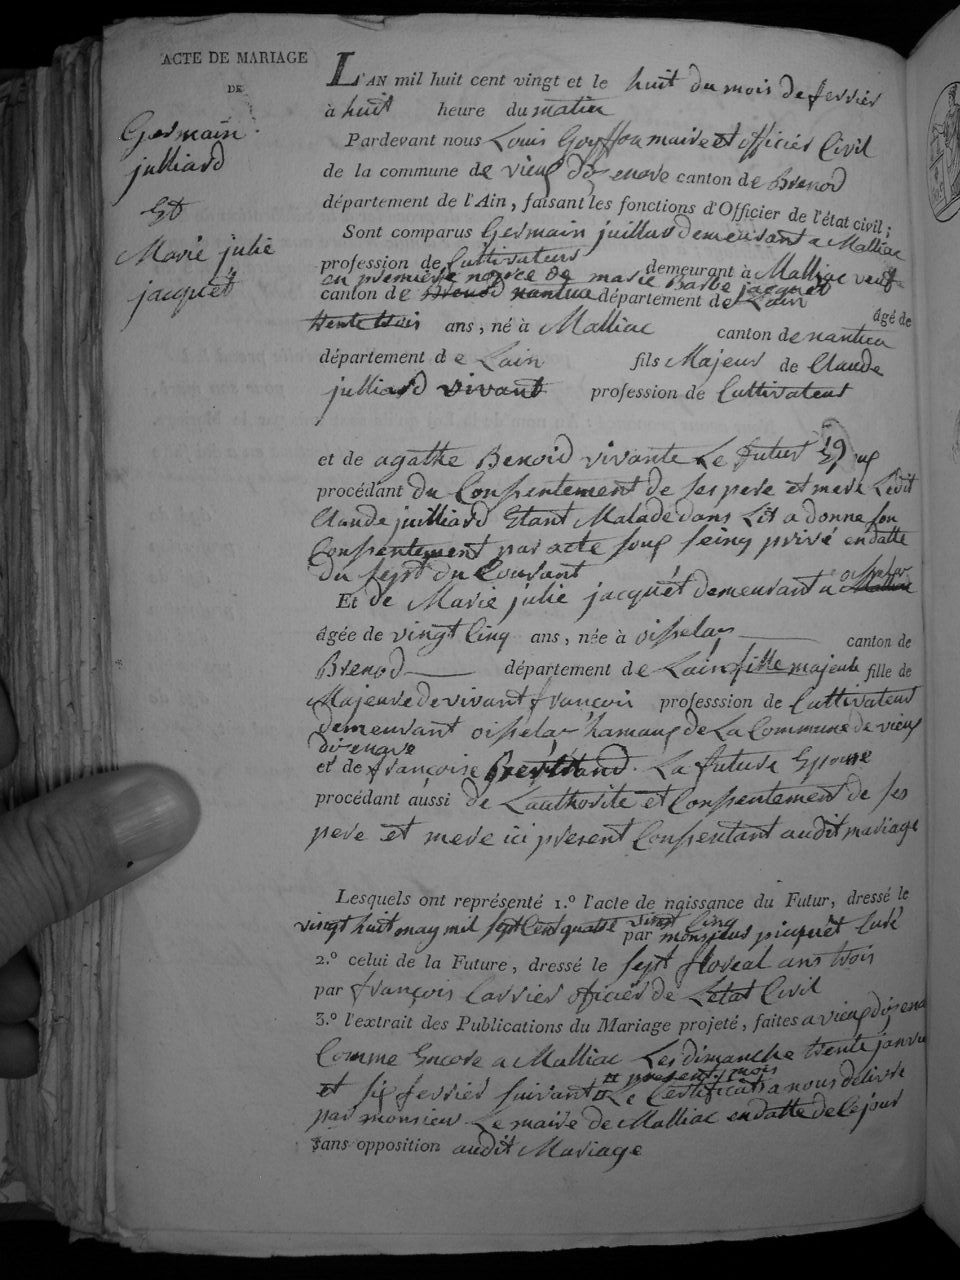 ACTE DE MARIAGE
DE
Germain
julliard
Et
Marie julie
jacquet
L'AN mil huit cent vingt et le huit du mois de fevrier
à huit heure du matin
Pardevant nous Louis Gouffon maire et officier Civil
de la commune de vieux d'yzenave canton de Brenod
département de l'Ain, faisant les fonctions d'Officier de l'état civil;
Sont comparus Germain juillard demeurant a Malliac
profession de Cultivateurs demeurant à Malliac veuf
en premiere nopce de marie Barbe jacquet
canton de Brenod nantua département de Lain
âgé de
trente trois ans, né à Malliac canton de nantua
département de Lain fils Majeur de Claude
julliard vivant profession de Cultivateur
et de agathe Benoid vivante Le futur Epoux
procédant du Consentement de ses pere et mere Ledit
Claude juilliard Etant Malade dans Lit a donne son
Consentement par acte sous seing privé en datte
du sept du Courant
Et de Marie julie jacquet demeurant a oisselas
âgée de vingt Cinq ans, née à oisselas canton de
Brenod département de Lain fille majeure fille de
Majeure de vivant françois professsion de Cultivateur
demeurant oisselas hamaux de La Commune de vieux
dizenave
et de françoise Bertrand. La future Epouse
procédant aussi de Lauthorite et Consentement de ses
pere et mere ici present Consentant audit mariage
Lesquels ont représenté 1.º l'acte de naissance du Futur, dressé le
vingt huit may mil sept Cent quatre vingt Cinq
par monsieur picquet Curé
2.º celui de la Future, dressé le sept floreal ans trois
par françois Carrier officier de Letat Civil
3.º l'extrait des Publications du Mariage projeté, faites a vieux d'izena
Comme Encore a Malliac Les dimanche trente janvie
present mois
et six fevrier suivant Le Certificat a nous delivré
par monsieur Le maire de Malliac en datte de Ce jour
sans opposition audit Mariage